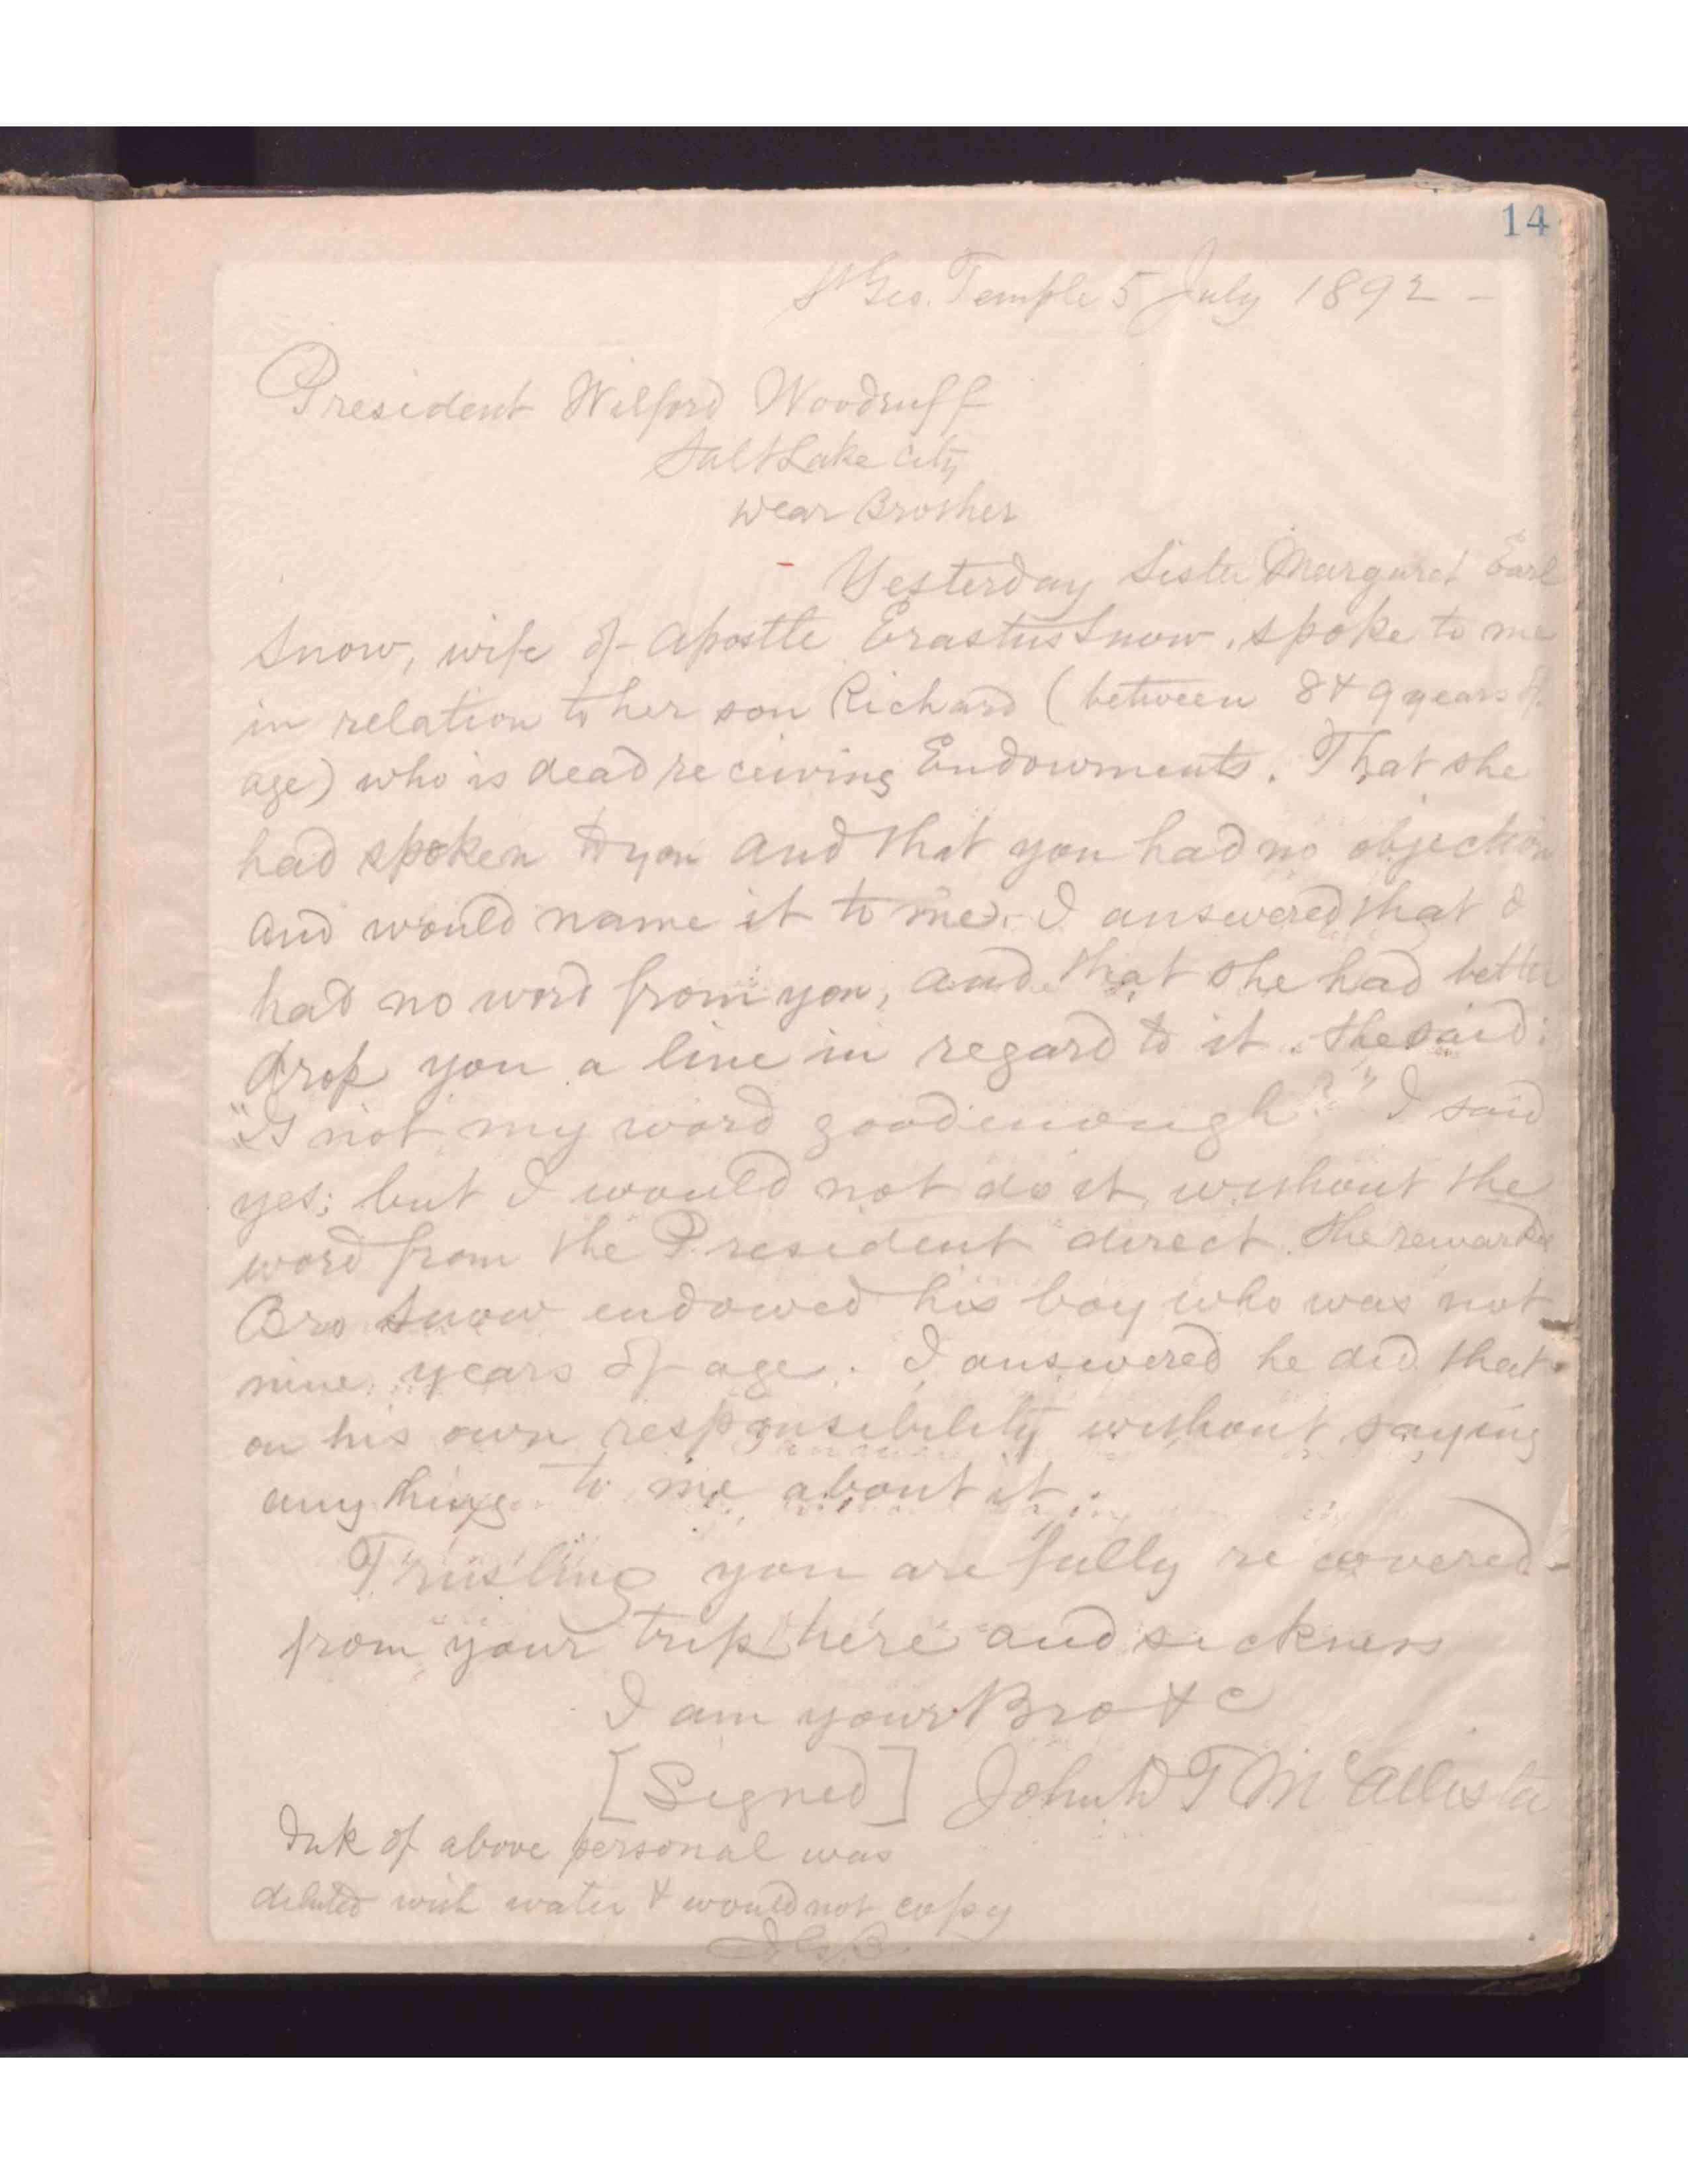 14
St Geo. Temple 5 July 1892 -
President Wilford Woodruff
Salt Lake City
Dear Brother
- Yesterday Sister Margaret Earl
Snow, wife of Apostle Erastus Snow, spoke to me
in relation to her son Richard (between 8 & 9 years of
age) who is dead receiving Endowments. That she
had spoken to you and that you had no objection
and would name it to me. I answered that I
had no word from you, and that she had better
drop you a line in regard to it. She said:
"Is not my word good enough?" I said
yes; but I would not do it without the
word from the President direct. She remarked
Bro Snow endowed his boy who was not
nine years of age. I answered he did that
on his own responsibility without saying
any thing to me about it.
Trusting you are fully recovered -
from your trip here and sickness
I am your Bro &c
[Signed] John D T McAllister
Ink of above personal was
diluted with water & would not copy